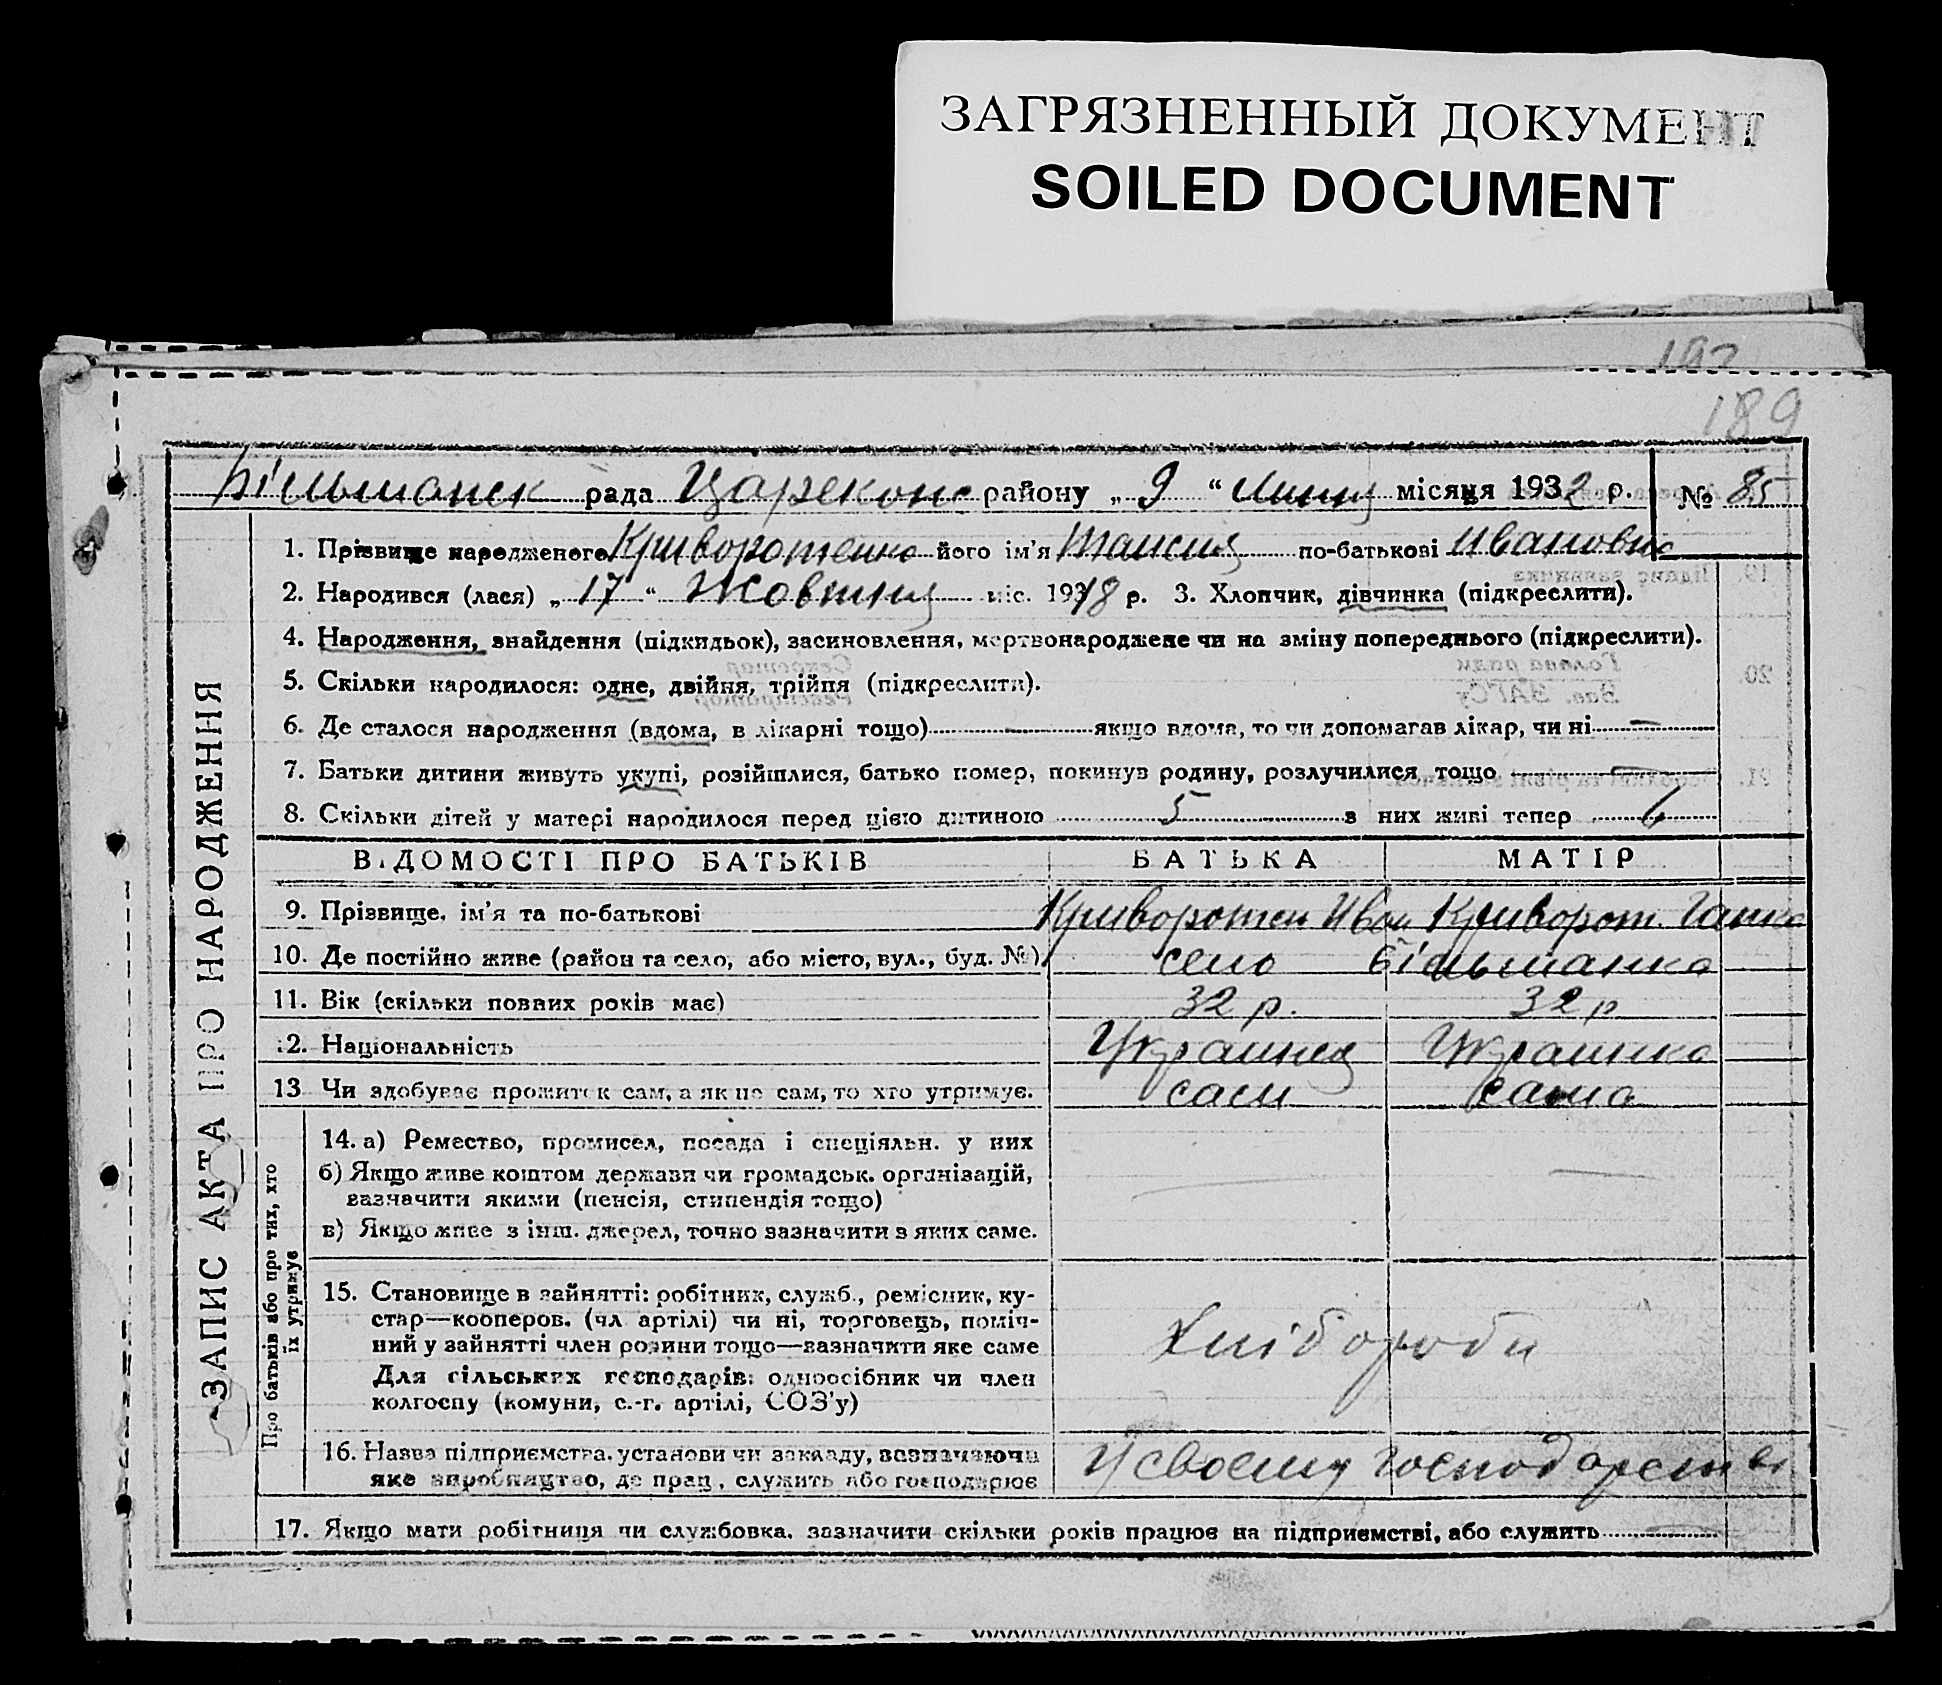 ЗАГРЯЗНЕННЫЙ ДОКУМЕНТ
SOILED DOCUMENT
189
Більманск рада Царекон району „ 9 “ Липня місяця 1932 р. № 85
1. Прізвище народженого Криворотенко його ім’я Таисия по-батькові Ивановна
2. Народився (лася) „ 17 “ Жовтня міс. 1918 р. 3. Хлопчик, дівчинка (підкреслити).
4. Народження, знайдення (підкидьок), засиновлення, мертвонароджене чи на зміну попереднього (підкреслити).
5. Скільки народилося: одне, двійня, трійня (підкреслити).
6. Де сталося народження (вдома, в лікарні тощо) якщо вдома, то чи допомагав лікар, чи ні —
7. Батьки дитини живуть укупі, розійшлися, батько помер, покинув родину, розлучилися тощо —
8. Скільки дітей у матері народилося перед цією дитиною 5 з них живі тепер 6
ВІДОМОСТІ ПРО БАТЬКІВ БАТЬКА МАТІР
9. Прізвище, ім’я та по-батькові Криворотен Иван Криворот. Ганна
10. Де постійно живе (район та село, або місто, вул., буд. №) село Більманка
11. Вік (скільки повних років має) 32 р. 32 р
12. Національність Украинец Украинка
13. Чи здобуває прожиток сам, а як не сам, то хто утримує. сам сама
14. а) Ремество, промисел, посада і спеціяльн. у них
б) Якщо живе коштом держави чи громадськ. організацій,
зазначити якими (пенсія, стипендія тощо)
в) Якщо живе з інш. джерел, точно зазначити з яких саме.
15. Становище в зайнятті: робітник, служб., ремісник, ку-
стар—кооперов. (чл. артілі) чи ні, торговець, поміч-
ний у зайнятті член родини тощо—зазначити яке саме
Для сільських господарів: одноосібник чи член
колгоспу (комуни, с.-г. артілі, СОЗ’у)
Хлібороби
16. Назва підприємства, установи чи закладу, зазначаючи
яке виробництво, де прац., служить або господарює
У своєму господарстві
17. Якщо мати робітниця чи службовка, зазначити скільки років працює на підприємстві, або служить
ЗАПИС АКТА ПРО НАРОДЖЕННЯ
Про батьків або про тих, хто
їх утримує